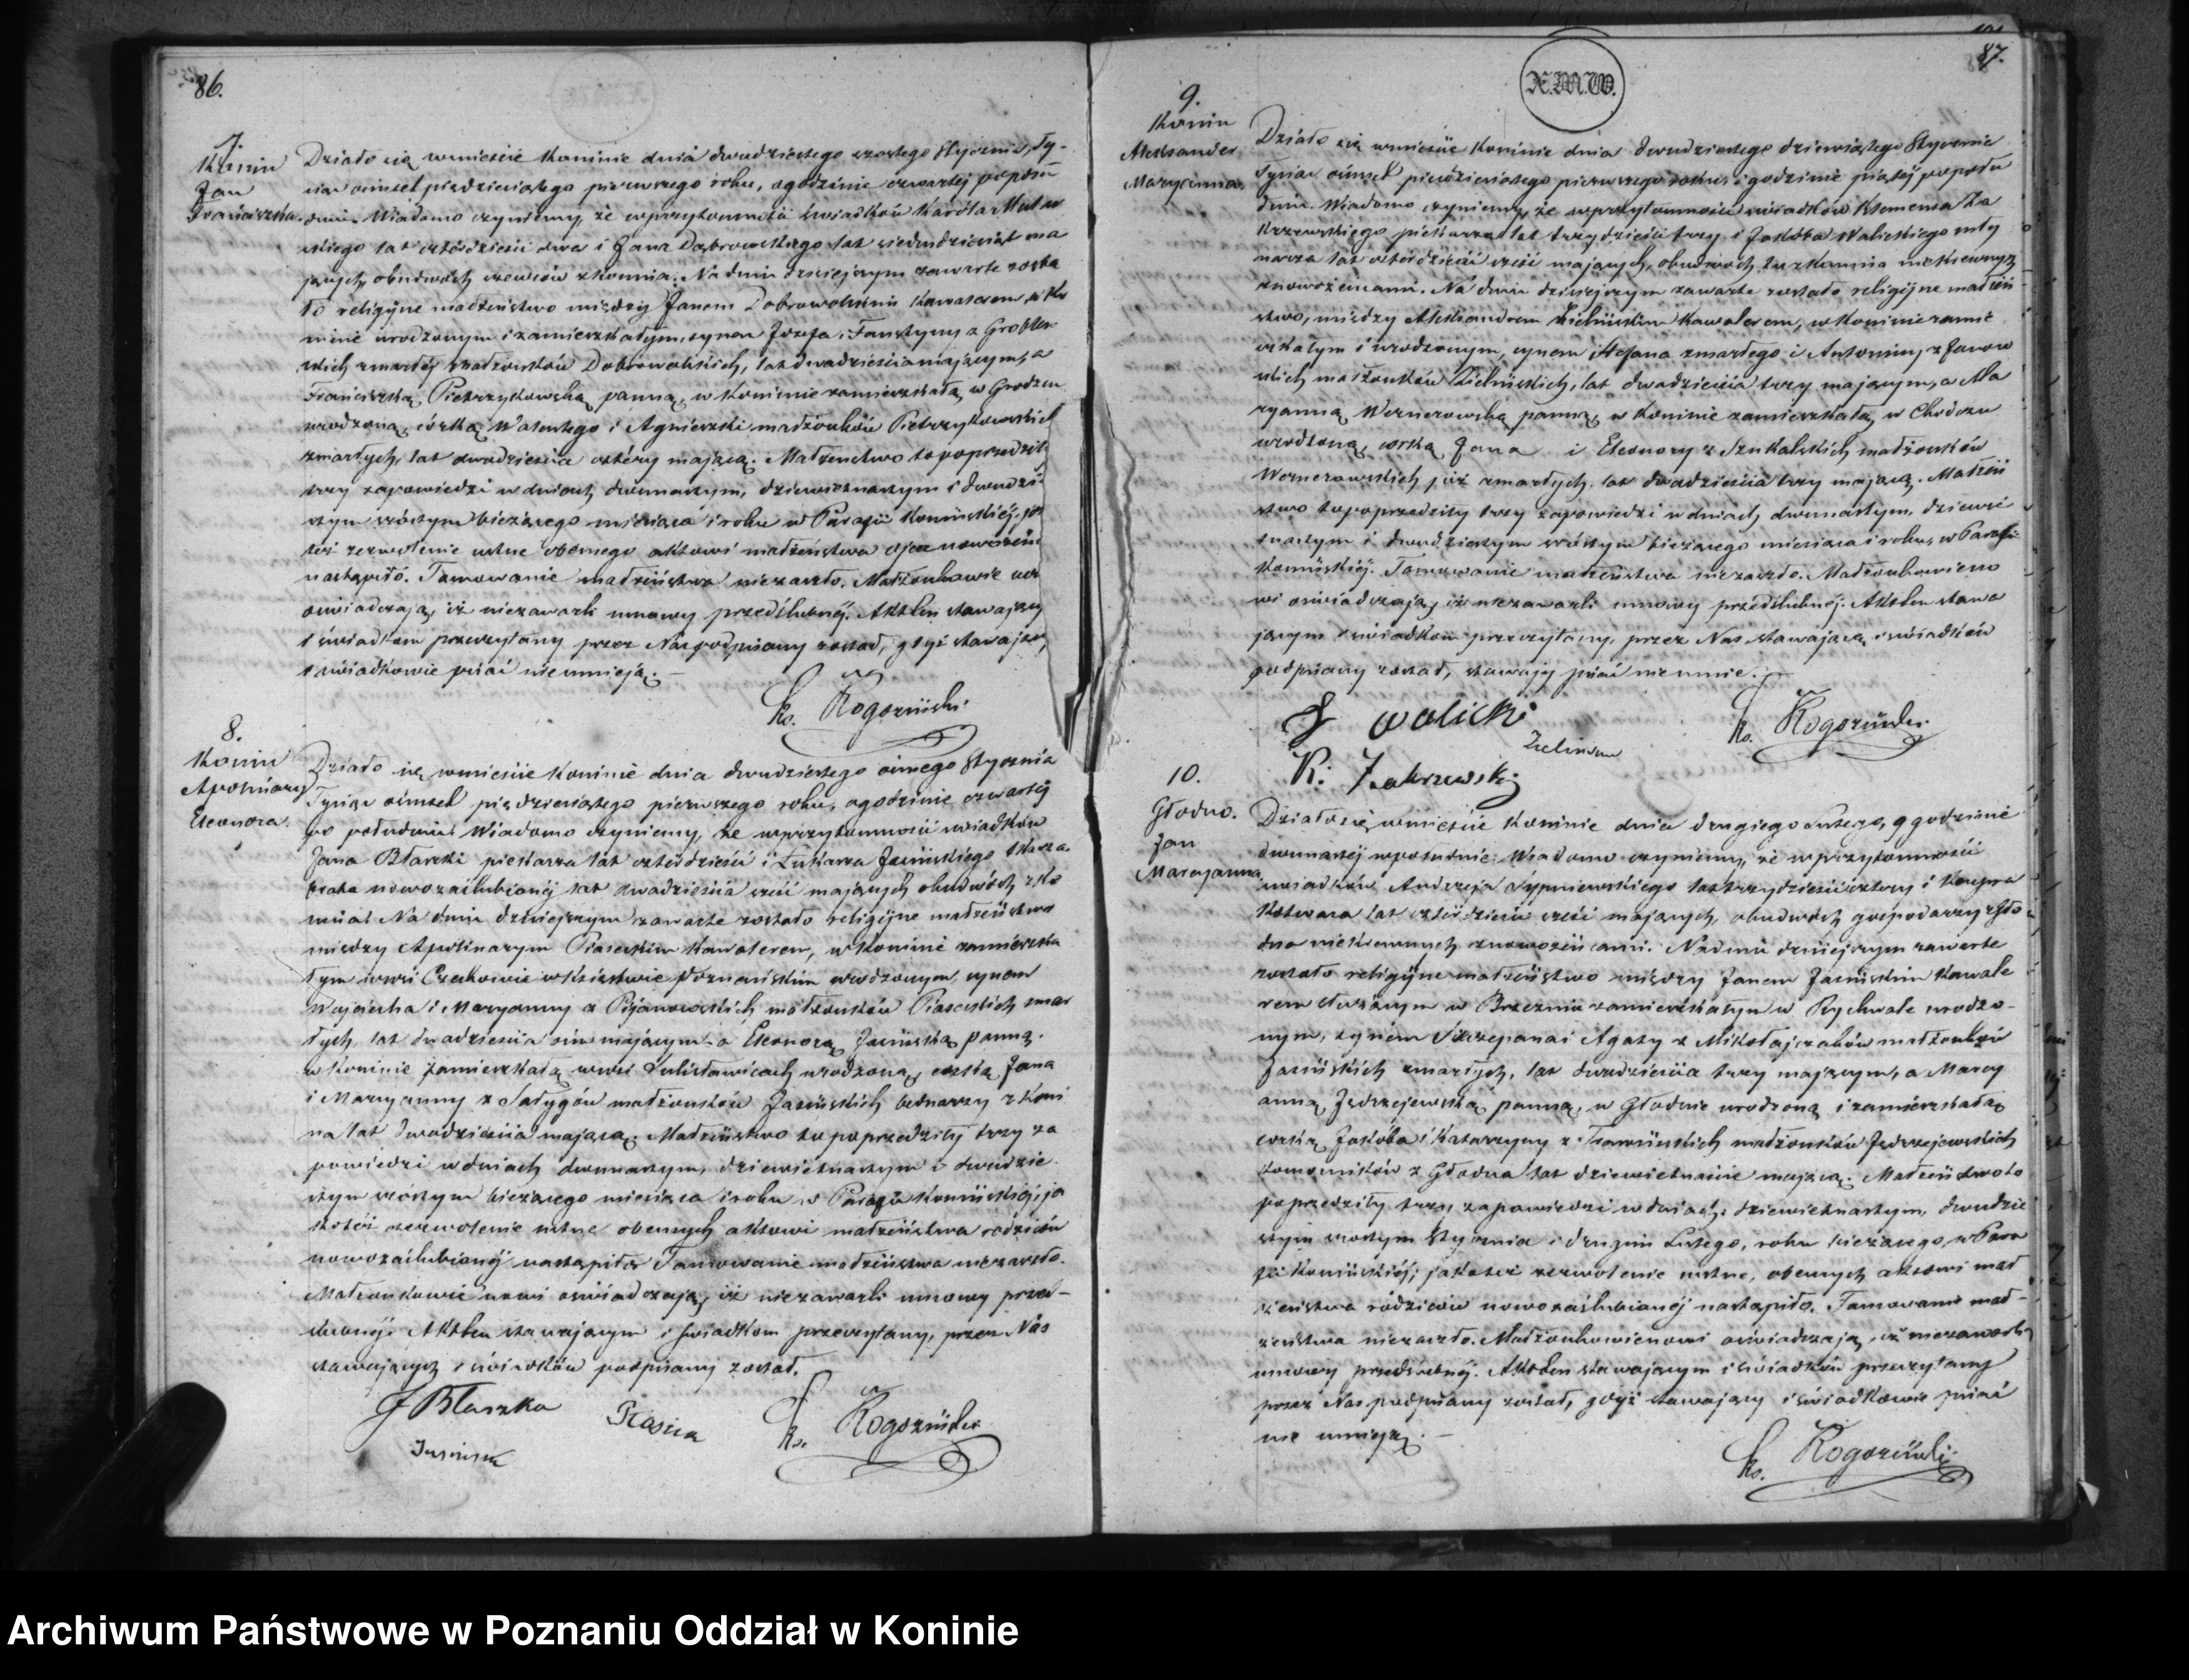 86.
7.
Konin
Jan
Franciszka.
Działo się wmieście Koninie dnia dwudziestego szóstego Stycznia, Ty-
siąc ośmset pięдziesiątego pierwszego roku, ogodzinie czwartej popołu
dniu. Wiadomo czyniemy, że wprzytomności świadków Karola
skiego lat czterdzieści dwa i Jana Dąbrowskiego lat siedmdziesiąt ma
jących, obudwóch szewców zKonina. Na dniu dzisiejszym zawarte zosta
ło religijne małżeństwo między Janem Dobrowolskim Kawalerem, w Ko
ninie urodzonym i zamieszkałym, synem Józefa i Faustyny z
skich zmarłéj małżonków Dobrowolskich, lat dwadzieścia mającym, a
Franciszką Pietrzykowską panną, w Koninie zamieszkałą, w Grodzcu
urodzoną, córką Walentego i Agnieszki małżonków Pietrzykowskich
zmarłych, lat dwadzieścia cztéry mającą. Małżeństwo to poprzedziły
trzy zapowiedzi w dniach dwunastym, dziewietnastym i dwudzie
stym szóstym bieżącego miesiąca i roku w Parafii Konińskiéj; jak
też zezwolenie ustne obecnego aktowi małżeństwa ojca nowożeńca
nastąpiło. Tamowanie małżeństwa niezaszło. Małżonkowie nowi
oświadczają, iż niezawarli umowy przedślubnéj. Akt ten stawającym
i świadkom przeczytany przez Nas podpisany został, gdyż stawający
i świadkowie pisać nieumieją. –
Ks. Rogoziński
8.
Konin
Apolinary
Eleonora.
Działo się wmieście Koninie dnia dwudziestego ósmego Stycznia
Tysiąc ośmset pięдziesiątego pierwszego roku, ogodzinie czwartéj
po południu. Wiadomo czyniemy, że wprzytomności świadków
Jana Błaszki piekarza lat czterdzieści i Łukasza Jasińskiego
brata nowozaślubionéj lat dwadzieścia sześć mających obudwóch z Ko
nina. Na dniu dzisiejszym zawarte zostało religijne małżeństwo
między Apolinarym Piaseckim Kawalerem, w Koninie zamieszka
łym wwsi Czekowie wKsięstwie Poznańskim urodzonym, synem
Wojciecha i Maryanny z Pijanowskich małżonków Piaseckich zmar
łych, lat dwadzieścia ośm mającym – a Eleonorą Jasińską panną.
w Koninie zamieszkałą wwsi Lubisławicach urodzoną, córką Jana
i Maryanny z Sałygów małżonków Jasińskich bednarzy z Koni
na lat dwadzieścia mającą. Małżeństwo to poprzedziły trzy za
powiedzi w dniach dwunastym, dziewietnastym i dwudzie
stym szóstym bieżącego miesiąca i roku w Parafii Konińskiéj; ja
koteż zezwolenie ustne obecnych aktowi małżeństwa rodziców
nowozaślubionéj nastąpiło. Tamowanie małżeństwa niezaszło.
Małżonkowie nowi oświadczają, iż niezawarli umowy przed-
ślubnéj. Akt ten stawającym i świadkom przeczytany, przez Nas
stawających i świadków podpisany został.
J Błaszka
Piasecki
Jasiński
Ks. Rogoziński
X.M.W.
87.
9.
Konin
Aleksander
Maryanna.
Działo się wmieście Koninie dnia dwudziestego dziewiątego Stycznia
Tysiąc ośmset pięдziesiątego pierwszego roku, o godzinie piątéj popołu
dniu. Wiadomo czyniemy, że wprzytomności świadków Klemensa Za
krzewskiego piekarza lat trzydzieści trzy i Jakóba Walickiego mły
narza lat czterdzieści sześć mających, obudwóch tu zKonina niekrewnych
znowożeńcami. Na dniu dzisiejszym zawarte zostało religijne małżeń
stwo, między Aleksandrem Zielińskim Kawalerem, w Koninie zamie
szkałym i urodzonym, synem Stefana zmarłego i Antoniny z Janow
skich małżonków Zielińskich, lat dwadzieścia trzy mającym, a Ma
ryanną Wernerowską panną, w Koninie zamieszkałą, w Chodczu
urodzoną, córką Jana i Eleonory z Szukalskich małżonków
Wernerowskich już zmarłych, lat dwadzieścia trzy mającą. Małżeń
stwo to poprzedziły trzy zapowiedzi w dniach dwunastym, dziewie
tnastym i dwudziestym szóstym bieżącego miesiąca i roku, w Parafii
Konińskiéj. Tamowanie małżeństwa niezaszło. Małżonkowie no
wi oświadczają, iż niezawarli umowy przedślubnéj. Akt ten stawa
jącym i świadkom przeczytany, przez Nas stawającą i świadków
podpisany został, stawający pisać nieumie.
J Walicki
Zielinski
K. Zakrzewski
Ks. Rogoziński
10.
Głodno.
Jan
Maryanna
Działo się wmieście Koninie dnia drugiego Lutego, o godzinie
dwunastéj wpołudnie. Wiadomo czyniemy, że wprzytomności
świadków Andrzeja Sypniewskiego lat trzydzieści cztery i Kacpra
Kotwasa lat czterdzieści sześć mających, obudwóch gospodarzy zGło
dna niekrewnych znowożeńcami. Na dniu dzisiejszym zawarte
zostało religijne małżeństwo między Janem Jasińskim Kawale
rem służącym w Brzeźnie zamieszkałym w Rychwale urodzo-
nym, synem Szczepana i Agaty z Mikołajczaków małżonków
Jasińskich zmarłych, lat dwadzieścia trzy mającym, a Mary
anną Jędrzejewską panną, w Głodnie urodzoną i zamieszkałą
córką Jakóba i Katarzyny z małżonków Jędrzejewskich
komorników z Głodna lat dziewietnaście mającą. Małżeństwo to
poprzedziły trzy zapowiedzi w dniach; dziewietnastym, dwudzie
stym szóstym Stycznia i drugim Lutego, roku bieżącego, w Para
fii Konińskiéj; jakoteż zezwolenie ustne, obecnych aktowi mał
żeństwa rodziców nowozaślubionéj nastąpiło. Tamowanie mał-
żeństwa niezaszło. Małżonkowie nowi oświadczają, iż niezawarli
umowy przedślubnéj. Akt ten stawającym i świadkom przeczytany
przez Nas podpisany został, gdyż stawający i świadkowie pisać
nie umieją. –
Ks. Rogoziński
Archiwum Państwowe w Poznaniu Oddział w Koninie